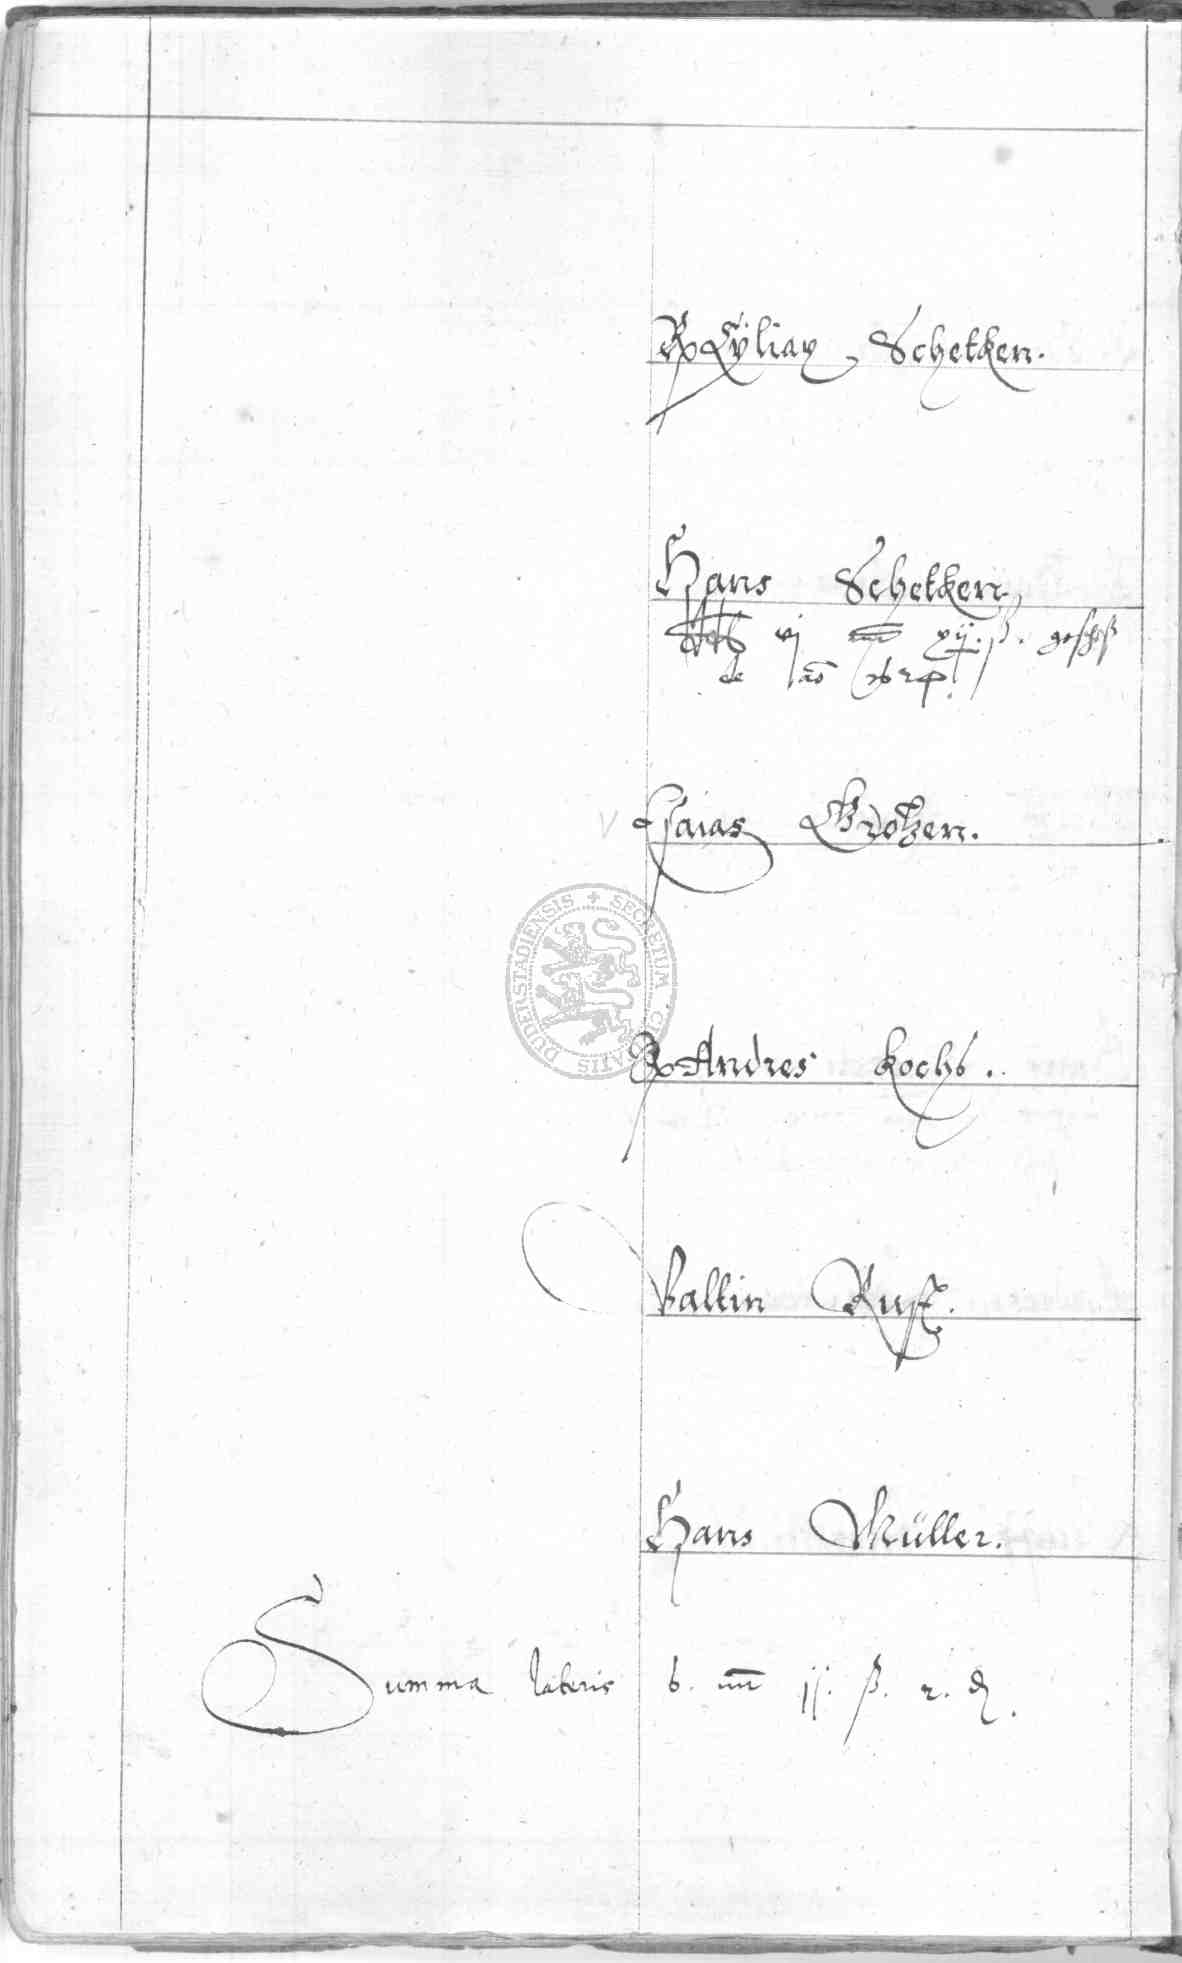 Cÿlian Schetken.
Hans Schetken.
vj xij. ß. geschoß
de
Esaias Grotzen.
SECRETUM CIVITATIS DUDERSTADIENSIS
Andres Kochs.
Valtin Rust.
Hans Müller.
Summa lateris 6. mr jj. ß. 2. d.